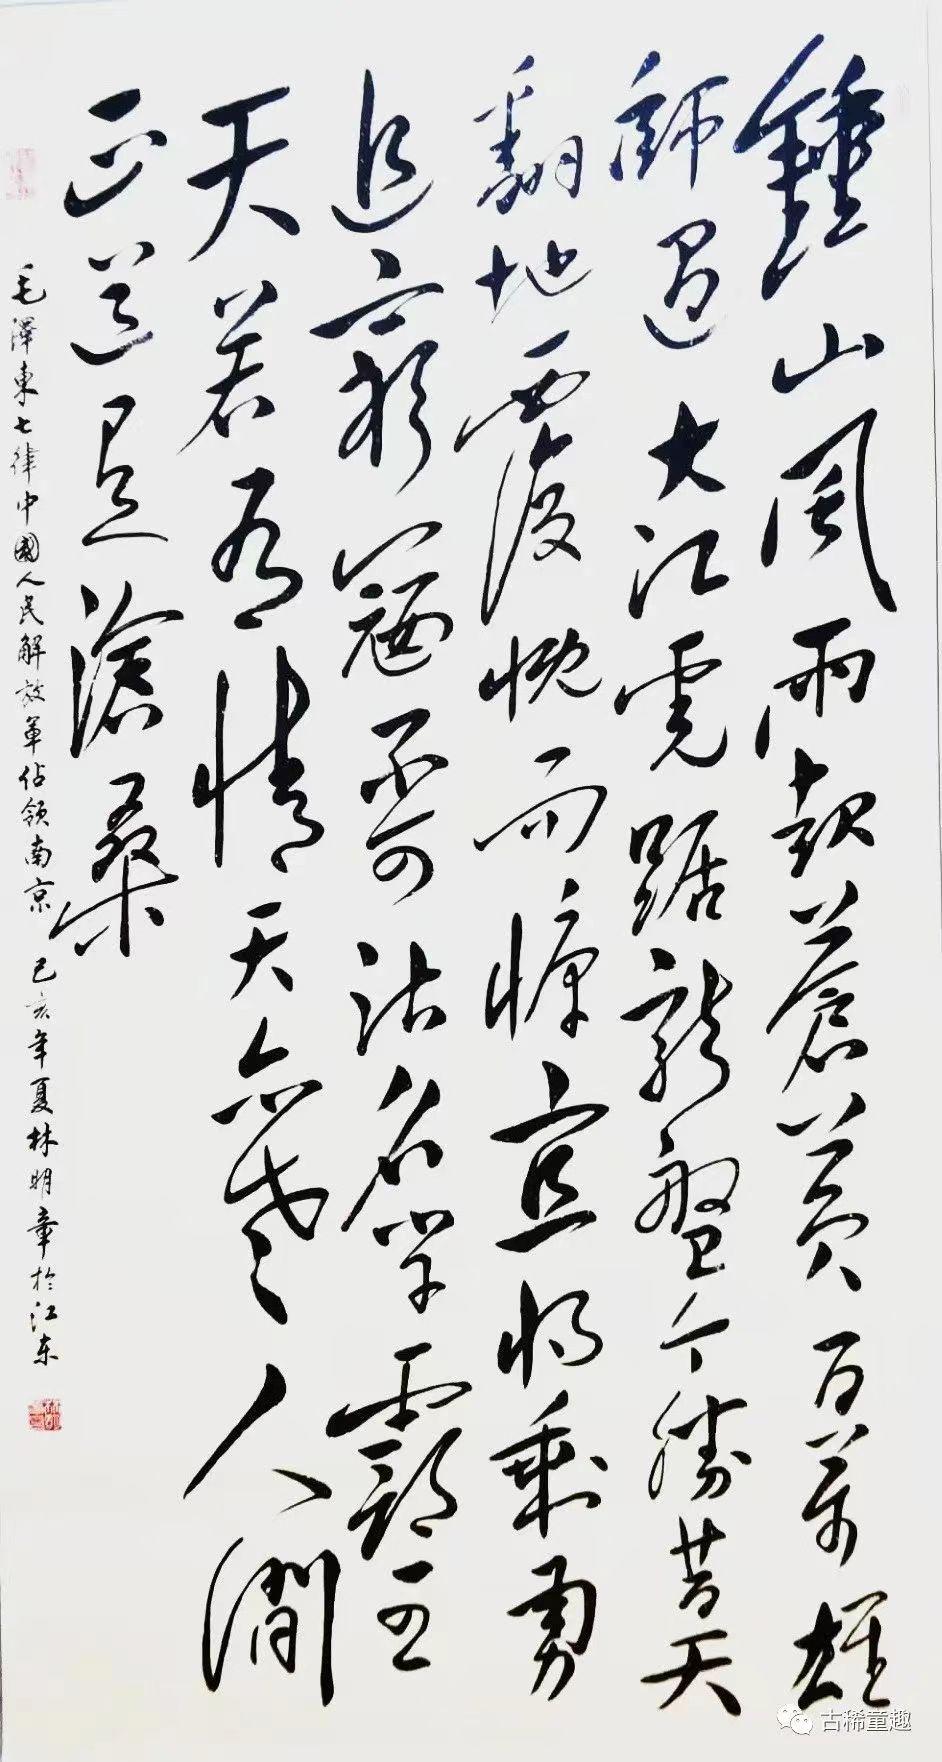 鍾山風雨起蒼黃百萬雄
師過大江虎踞龍盤今勝昔天
翻地覆慨而慷宜將剩勇
追窮寇不可沽名學霸王
天若有情天亦老人間
正道是滄桑
毛澤東七律中國人民解放軍佔領南京 己亥年夏林明章於江东
古稀童趣